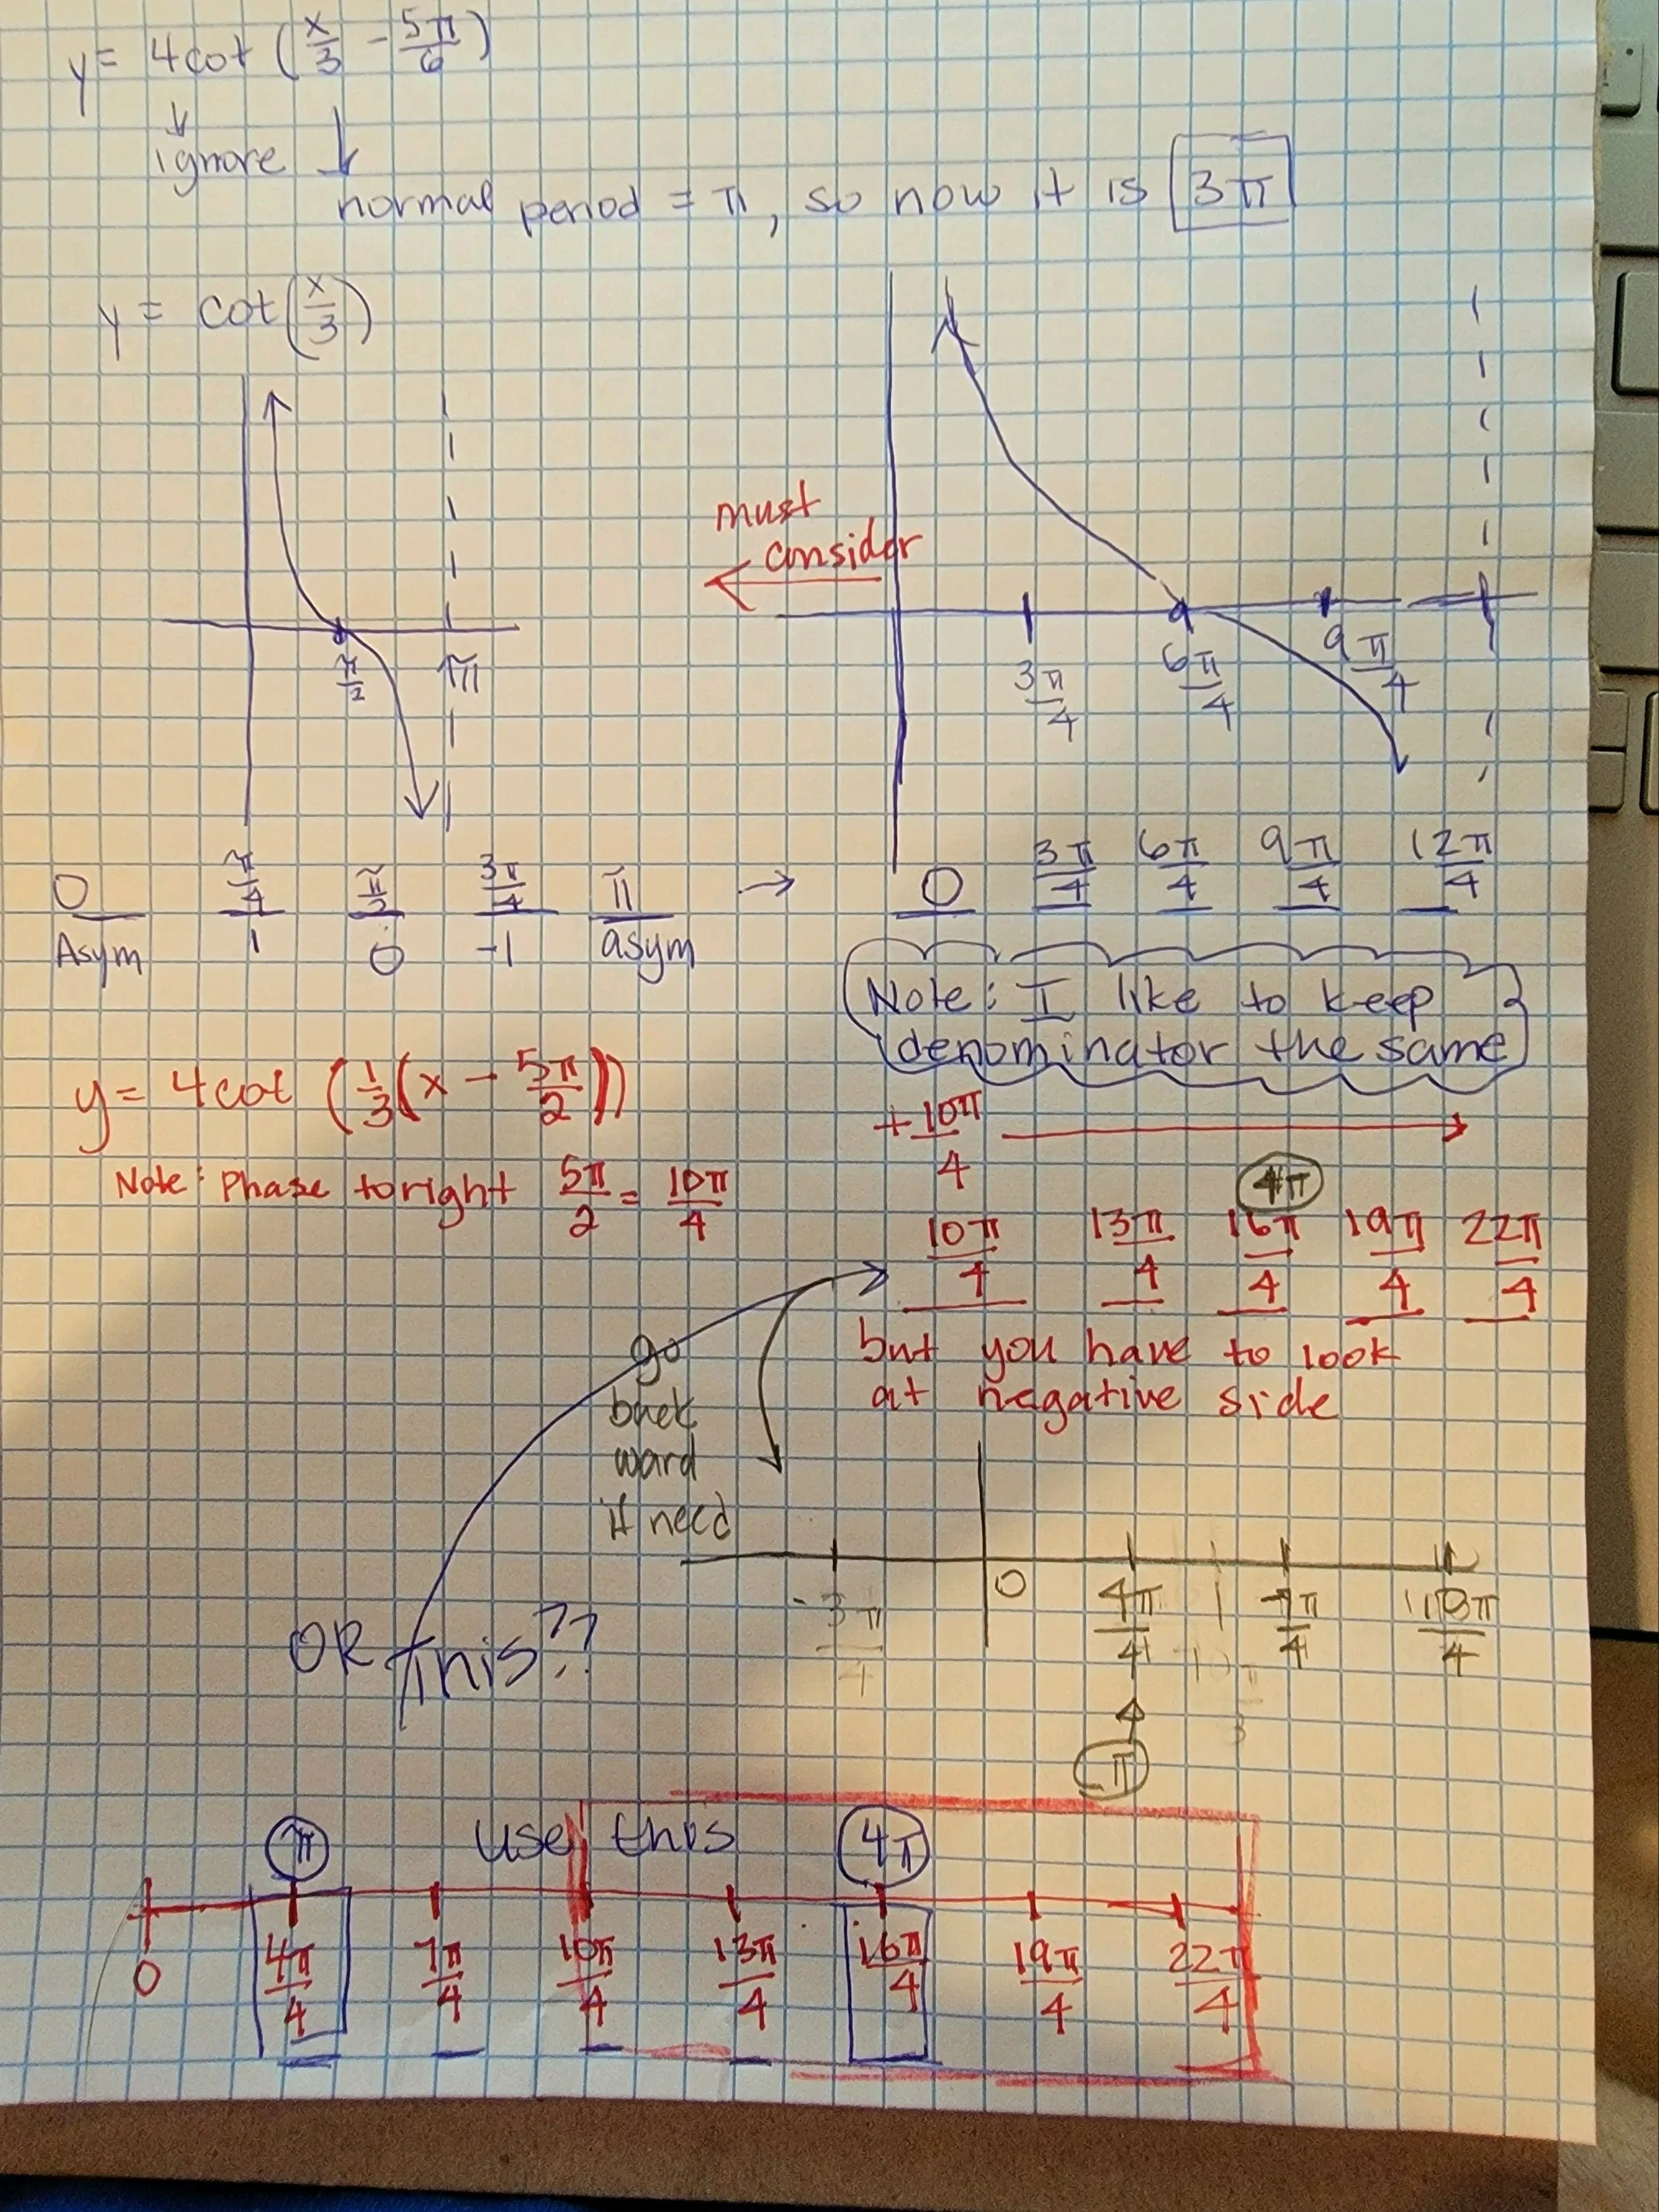 y = 4cot (x/3 - 5π/6)
ignore
normal period = π, so now it is 3π
y = cot(x/3)
must
consider
π/2 π
3π/4 6π/4 9π/4
0 π/4 π/2 3π/4 π → 0 3π/4 6π/4 9π/4 12π/4
Asym 1 0 -1 asym
Note: I like to keep
denominator the same
y = 4cot (1/3(x - 5π/2))
+10π/4
Note: Phase to right 5π/2 = 10π/4
4π
10π/4 13π/4 16π/4 19π/4 22π/4
but you have to look
at negative side
go
back
ward
if need
-3π/4 0 4π/4 7π/4
π
OR this??
π use this 4π
0 4π/4 7π/4 10π/4 13π/4 16π/4 19π/4 22π/4